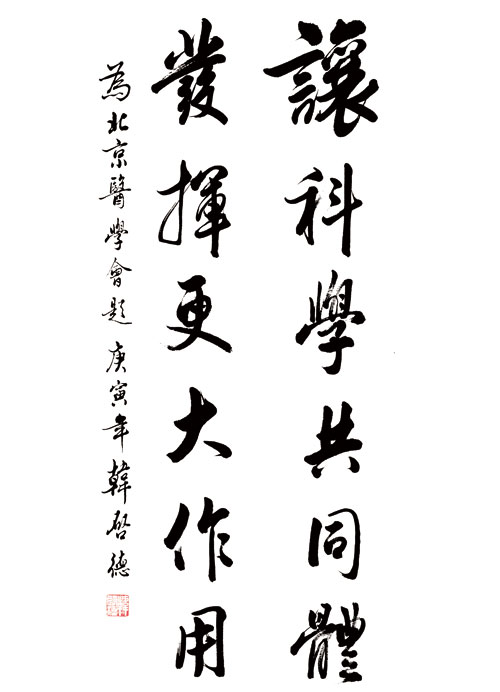 讓科學共同體
發揮更大作用
為北京醫學會題 庚寅年 韓啓德